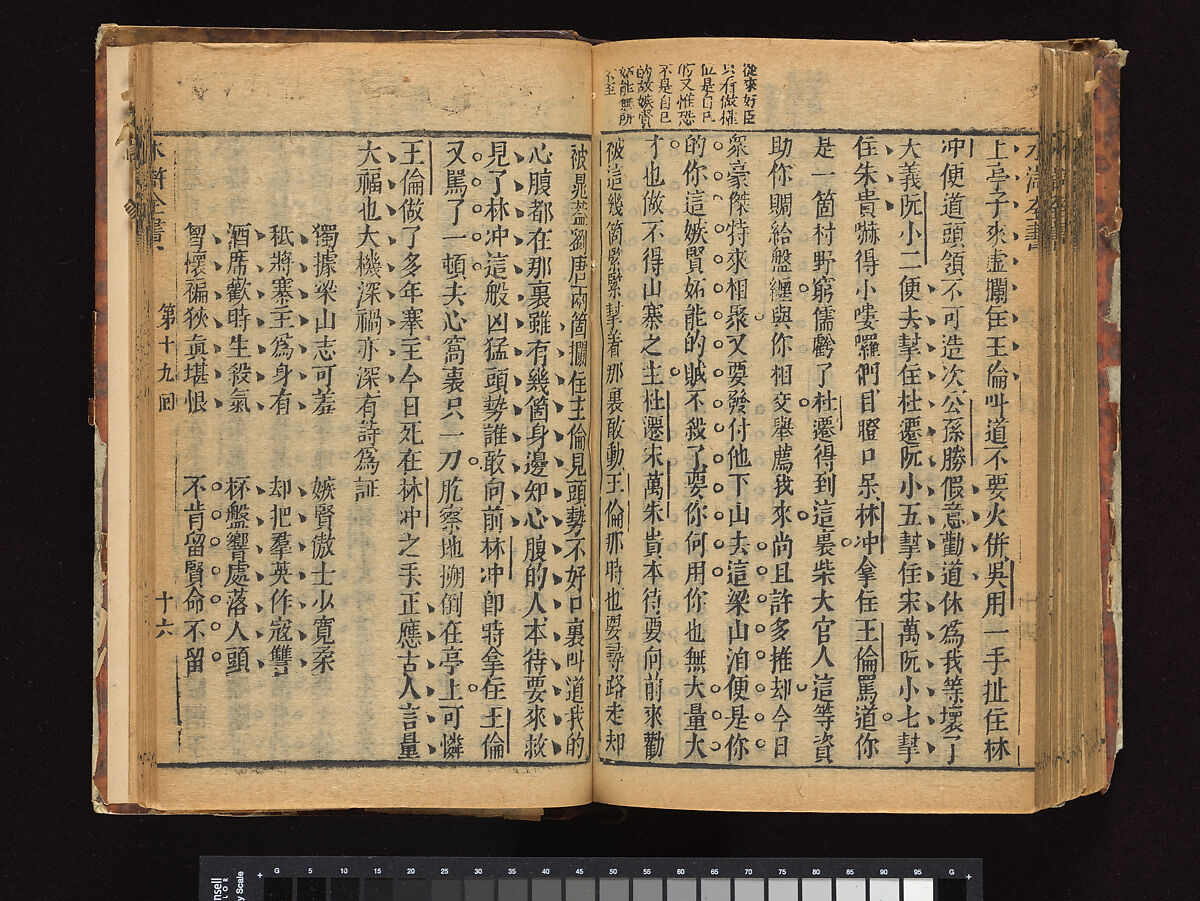 從來奸臣
只有做催
位是自己
的又惟恐
不是自己
的故嫉賢
妬能無所
不至
上亭子來虛攔住王倫叫道不要火併吳用一手扯住林
冲便道頭領不可造次公孫勝假意勸道休爲我等壞了
大義阮小二便去拏住杜遷阮小五拏住宋萬阮小七拏
住朱貴嚇得小嘍囉們目瞪口呆林冲拿住王倫罵道你
是一箇村野窮儒虧了杜遷得到這裏柴大官人這等資
助你賙給盤纏與你相交舉薦我來尚且許多推却今日
衆豪傑特來相聚又要發付他下山去這梁山泊便是你
的你這嫉賢妬能的賊不殺了要你何用你也無大量大
才也做不得山寨之主杜遷宋萬朱貴本待要向前來勸
被這幾箇緊緊拏着那裏敢動王倫那時也要尋路走却
被晁葢劉唐兩箇攔住王倫見頭勢不好口裏叫道我的
心腹都在那裏雖有幾箇身邊知心腹的人本待要來救
見了林冲這般凶猛頭勢誰敢向前林冲卽時拿住王倫
又罵了一頓去心窩裏只一刀肐察地搠倒在亭上可憐
王倫做了多年寨主今日死在林冲之手正應古人言量
大福也大機深禍亦深有詩爲証
獨據梁山志可羞 嫉賢傲士少寬柔
秪將寨主爲身有 却把羣英作寇讐
酒席歡時生殺氣 杯盤響處落人頭
胷懷褊狹眞堪恨 不肯留賢命不留
水滸全書 第十九囘 十六